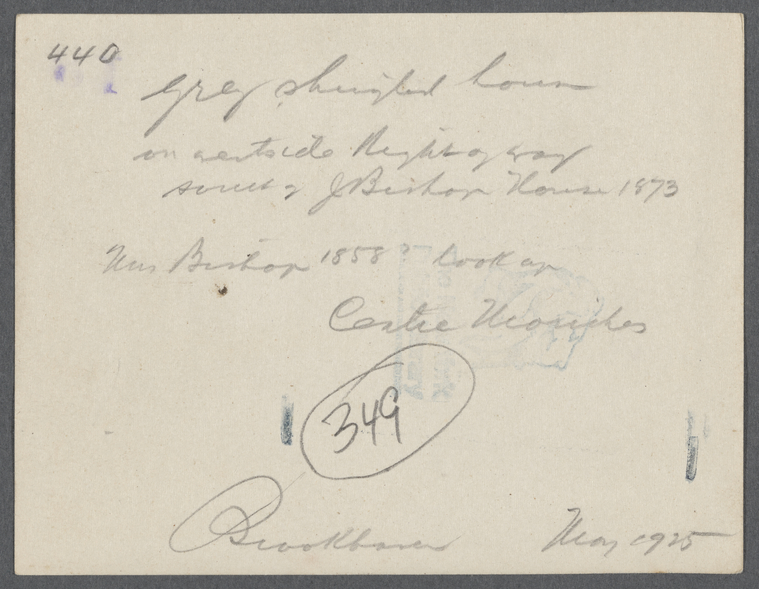 440
Grey shingled house
on westside Right of way
south of J Bishop House 1873
Mrs Bishop 1858? Look up
Centre Moriches
349
Brookhaven May 1925